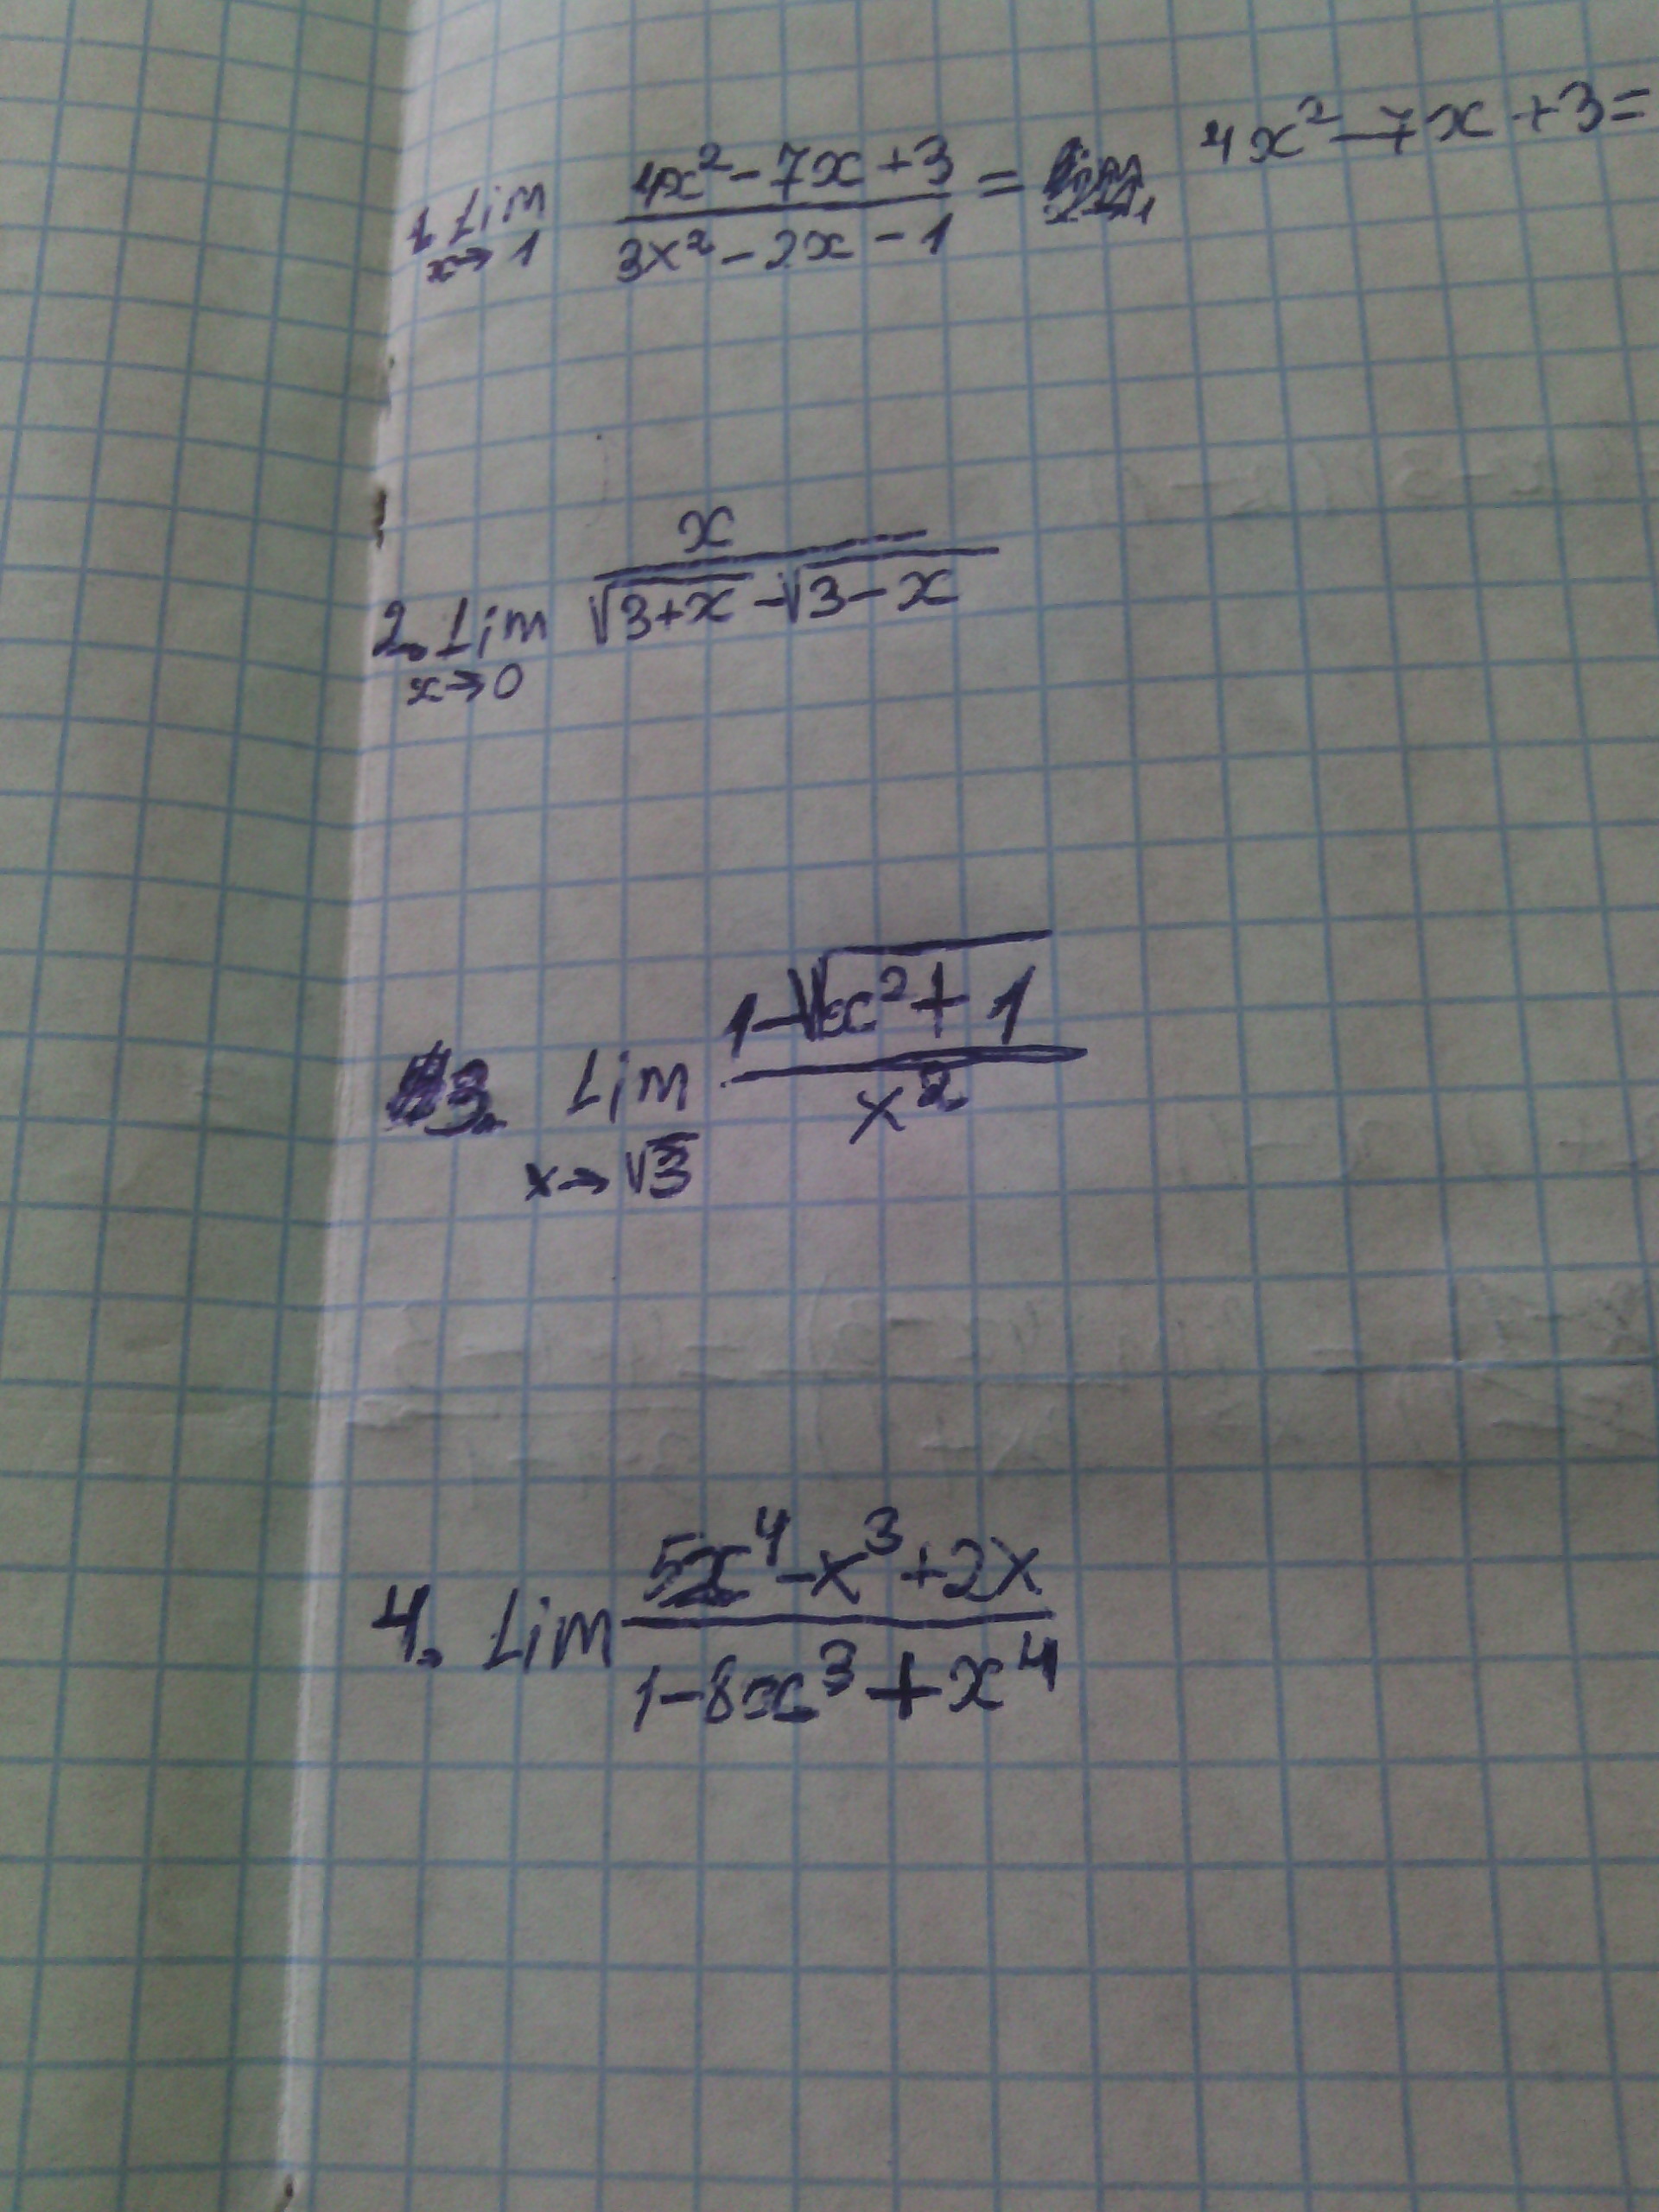 1 Lim x→1 (4x² - 7x + 3)/(3x² - 2x - 1) = 4x² - 7x + 3 =
2. Lim x→0 x/(√(3+x) - √(3-x))
3. Lim x→√3 (1 - √(x² + 1))/x²
4. Lim (5x⁴ - x³ + 2x)/(1 - 8x³ + x⁴)